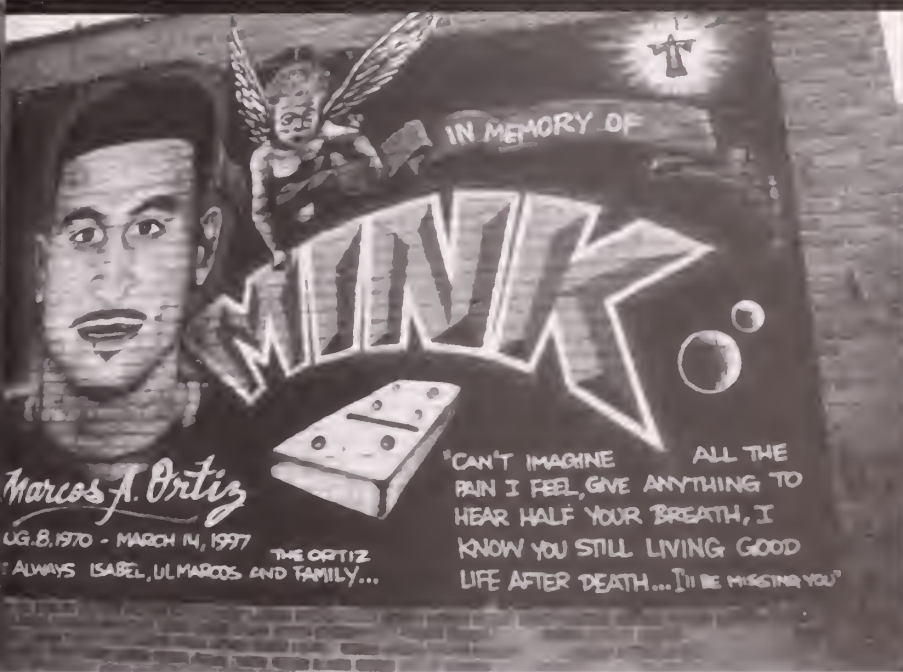 IN MEMORY OF
MINK
Marcos A. Ortiz
UG.8.1970 - MARCH 14, 1997
ALWAYS ISABEL, LIL MARCOS AND THE ORTIZ FAMILY...
"CAN'T IMAGINE ALL THE
PAIN I FEEL, GIVE ANYTHING TO
HEAR HALF YOUR BREATH, I
KNOW YOU STILL LIVING GOOD
LIFE AFTER DEATH... I'll BE MISSING YOU"